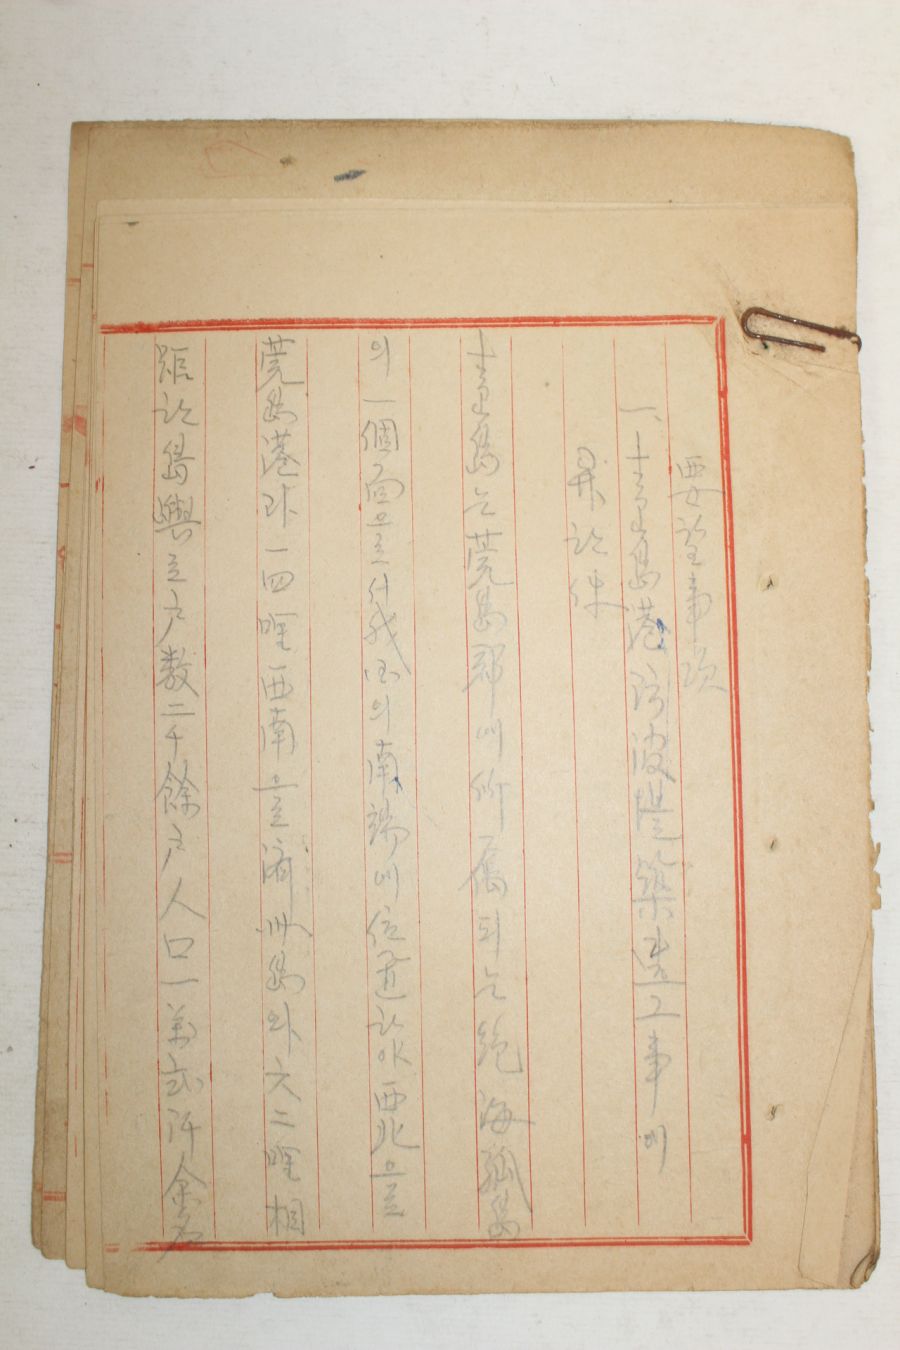 要望事項
一、靑山島港防波堤築造工事에
關한件
靑山島는莞島郡에所屬되는絶海孤島
의一個面으로서我国의南端에位置하야西北으로
莞島港과一四哩西南으로濟州島와六二哩相
距한島嶼로戶數二千餘戶人口一萬貳阡余名